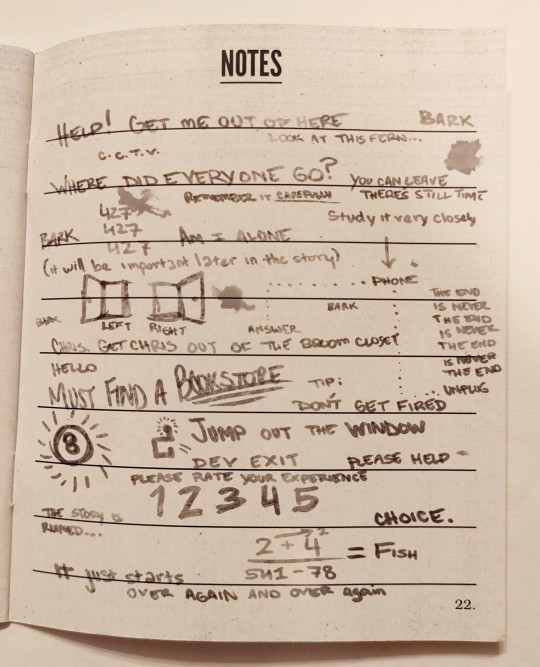 NOTES
HELP! GET ME OUT OF HERE BARK
LOOK AT THIS FERN...
C.C.T.V.
WHERE DID EVERYONE GO? YOU CAN LEAVE
REMEMBER IT CAREFULLY THERES STILL TIME
427 Study it very closely
427
BARK AM I ALONE
427
(it will be important later in the story)
PHONE
THE END
IS NEVER
THE END
IS NEVER
THE END
IS NEVER
THE END
BARK LEFT RIGHT BARK
ANSWER
CHRIS. GET CHRIS OUT OF THE BROOM CLOSET
HELLO
MUST FIND A BOOKSTORE TIP: UNPLUG
DON'T GET FIRED
8 JUMP OUT THE WINDOW
DEV EXIT PLEASE HELP
PLEASE RATE YOUR EXPERIENCE
1 2 3 4 5
THE STORY IS CHOICE.
RUINED...
2 + 4² = FISH
541-78
It just starts
OVER AGAIN AND OVER again
22.